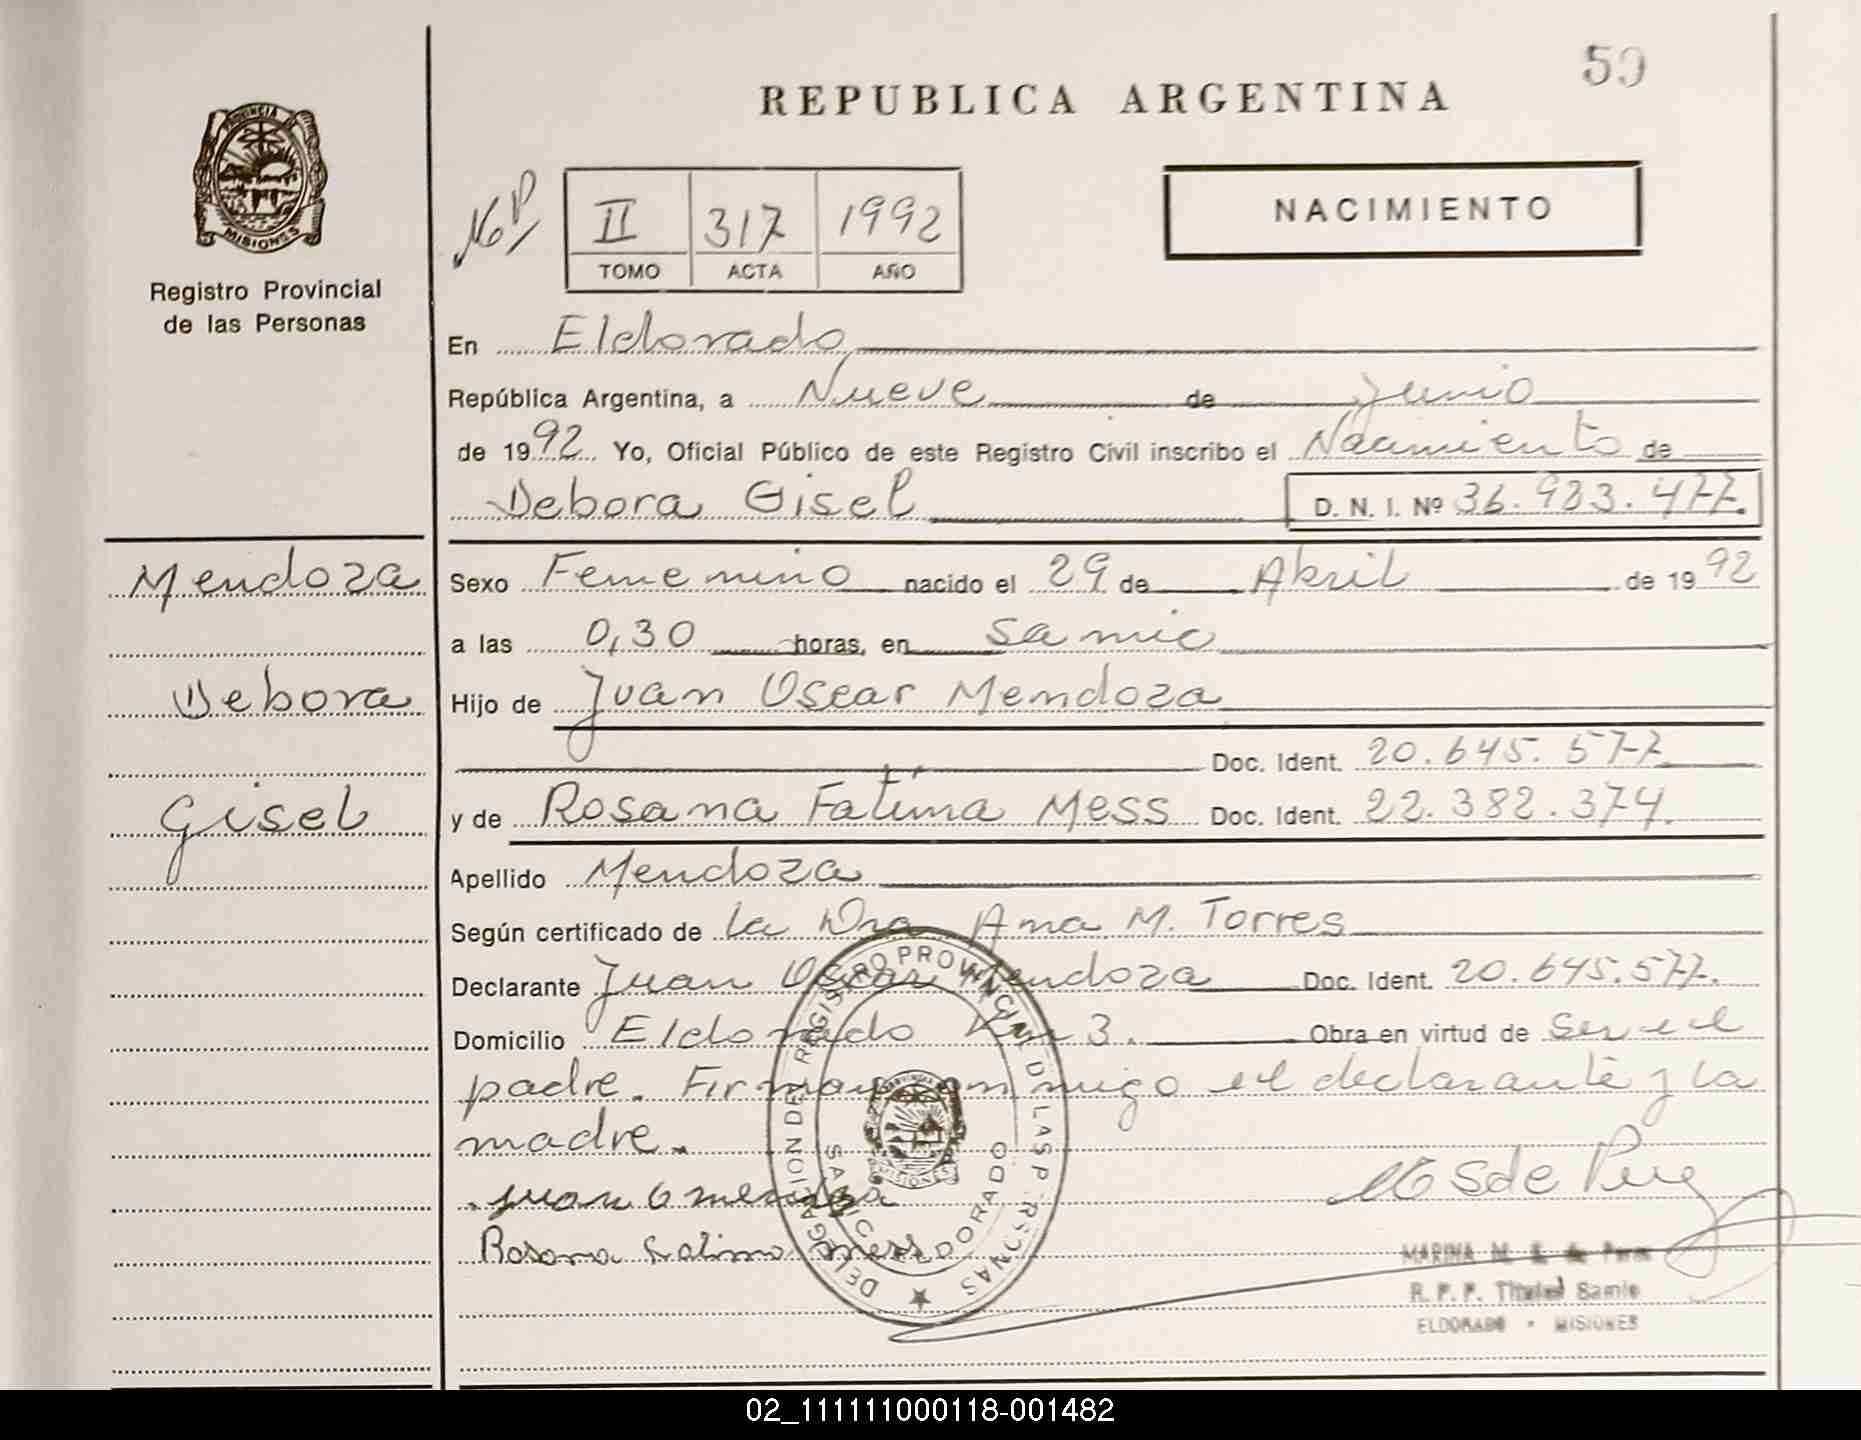 59
REPUBLICA ARGENTINA
PROVINCIA DE
MISIONES
Registro Provincial
de las Personas
II 317 1992
TOMO ACTA AÑO
NACIMIENTO
En Eldorado
República Argentina, a Nueve de Junio
de 1992 Yo, Oficial Público de este Registro Civil inscribo el Nacimiento de
Debora Gisel D. N. I. Nº 36.983.477.
Mendoza
Debora
Gisel
Sexo Femenino nacido el 29 de Abril de 1992
a las 0,30 horas, en Samic
Hijo de Juan Oscar Mendoza
Doc. Ident. 20.645.577
y de Rosana Fatima Mess Doc. Ident. 22.382.374.
Apellido Mendoza
Según certificado de la Dra Ana M. Torres
Declarante Juan Oscar Mendoza Doc. Ident. 20.645.577.
Domicilio Eldorado Km 3. Obra en virtud de ser el
padre. Firman conmigo el declarante y la
madre.
Juan O mendoza
Rosana Fatima mess
DELEGACION DEL REGISTRO PROVINCIAL DE LAS PERSONAS
SAMIC ELDORADO
MISIONES
MARINA M. S. de
R. P. P. Titular Samic
ELDORADO - MISIONES
02_111111000118-001482